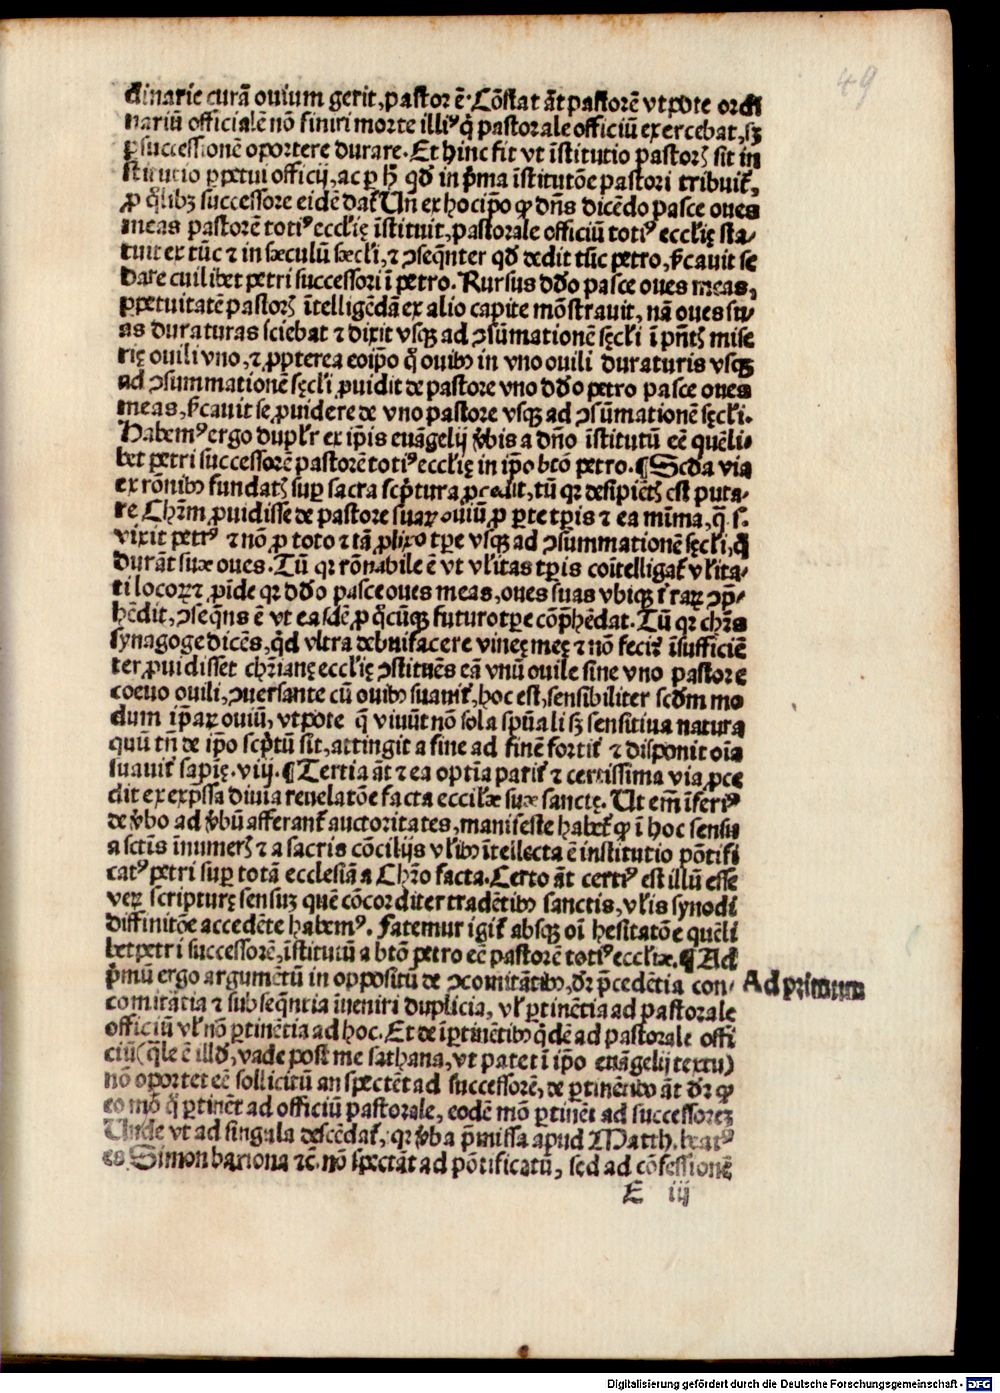 49
dinarie curã ouium gerit, pastor ẽ. Cõstat ãt pastorẽ vtpote ordi
nariũ officialẽ nõ finiri morte illiꝰ q̇ pastorale officiũ exercebat, sꝫ
ꝑ successionẽ oportere durare. Et hinc fit vt ĩstitutio pastorꝭ sit in
stitutio ꝑpetui officij, ac ꝑ hͦ qd̾ in p̃ma ĩstitutõe pastori tribuit̃,
ꝓ q̃libꝫ successore eidẽ dat̃. Uñ ex hocip̃o ꝙ dñs dicẽdo pasce oues
meas pastorẽ totiꝰ eccľię ĩstituit, pastorale officiũ totiꝰ eccľię sta-
tuit ex tũc ⁊ in sæculũ sæcľi, ⁊ ꝯseq̃nter qd̾ dedit tũc petro, p̃cauit se
dare cuilibet petri successori ĩ petro. Rursus dd̾o pasce oues meas,
ꝑpetuitatẽ pastorꝭ ĩtelligẽdã ex alio capite mõstrauit, nã oues su-
as duraturas sciebat ⁊ dixit vsqꝫ ad ꝯsũmationẽ sęcľi ĩ p̃ntꝭ mise
rię ouili vno, ⁊ ꝓpterea eoip̃o q̇ ouibꝰ in vno ouili duraturis vsqꝫ
ad ꝯsummationẽ sęcľi ꝓuidit de pastore vno dd̾o petro pasce oues
meas, p̃cauit se ꝓuidere de vno pastore vsqꝫ ad ꝯsũmationẽ sęcľi.
Habemꝰ ergo dupľr ex ip̃is euãgelij v̾bis a dño ĩstitutũ eẽ quẽli-
bet petri successorẽ pastorẽ totiꝰ eccľię in ip̃o btõ petro. ¶ Scd̾a via
ex rõnibꝰ fundatꝭ suꝑ sacra scp̃tura ꝓcedit, tũ qꝛ desipiẽtꝭ est puta-
re Chr̃m ꝓuidisse de pastore suaꝝ ouiũ ꝓ ꝑte tꝑis ⁊ ea mĩma, q̃ .s.
vixit petrꝰ ⁊ nõ ꝓ toto ⁊ tã ꝓlixo tꝑe vsqꝫ ad ꝯsummationẽ sęcľi, q̇
durãt suæ oues. Tũ qꝛ rõnabile ẽ vt vľitas tꝑis coĩtelligat̃ vľita-
ti locoꝝ, ⁊ ꝓĩde qꝛ dd̾o pasce oues meas, oues suas vbiqꝫ t̾raꝝ ꝯp̃-
hẽdit, ꝯseq̃ns ẽ vt easdẽ ꝓ q̊cũqꝫ futuro tꝑe cõp̃hẽdat. Tũ qꝛ chr̃s
synagoge dicẽs, q̇d vltra debui facere vineę meę ⁊ nõ feci: ĩsufficiẽ
ter ꝓuidisset chr̃ianę eccľię ꝯstituẽs eã vnũ ouile sine vno pastore
coeuo ouili, ꝯuersante cũ ouibꝰ suauit̃, hoc est, sensibiliter scd̾m mo
dum ip̃aꝝ ouiũ, vtpote q̃ viuũt nõ sola sp̃uali sꝫ sensitiua natura
quũ tñ de ip̃o scp̃tũ sit, attingit a fine ad finẽ fortit̃ ⁊ disponit oĩa
suauit̃ sapię. viij. ¶ Tertia ãt ⁊ ea optĩa parit̃ ⁊ certissima via ꝓce
dit ex exp̃ssa diuĩa reuelatõe facta eccľiæ suæ sanctę. Ut em̃ ĩferiꝰ
de v̾bo ad v̾bũ afferant̃ auctoritates, manifeste habet̃ ꝙ ĩ hoc sensu
a sctĩs ĩnumerꝭ ⁊ a sacris cõcilijs vľibꝰ ĩtellecta ẽ institutio põtifi
catꝰ petri suꝑ totã ecclesiã a Chr̃o facta. Certo ãt certiꝰ est illũ esse
veꝝ scripturę sensuꝫ quẽ cõcorditer tradẽtibꝰ sanctis, vľis synodi
diffinitõe accedẽte habemꝰ. Fatemur igit̃ absqꝫ oĩ hesitatõe quẽli
bet petri successorẽ, ĩstitutũ a btõ petro eẽ pastorẽ totiꝰ eccľiæ. ¶ Ad
p̃mũ ergo argumẽtũ in oppositũ de ꝯcomitãtibꝰ, dr̃ p̃cedẽtia con-
Ad primum
comitãtia ⁊ subseq̃ntia ĩueniri duplicia, vľ ꝑtinẽtia ad pastorale
officiũ vľ nõ ꝑtinẽtia ad hoc. Et de ĩꝑtinẽtibꝰ q̇dẽ ad pastorale offi
ciũ (q̃le ẽ illd̾, vade post me sathana, vt patet ĩ ip̃o euãgelij textu)
nõ oportet eẽ sollicitũ an spectẽt ad successorẽ, de ꝑtinẽtibꝰ ãt dr̃ ꝙ
eo mõ q̇ ꝑtinẽt ad officiũ pastorale, eodẽ mõ ꝑtinẽt ad successoreꝫ
Unde vt ad singula descẽdat̃, qꝛ v̾ba p̃missa apud Matth. beatꝰ
es Simon bariona ⁊c̃. nõ spectãt ad põtificatũ, sed ad cõfessionẽ
E iij
Digitalisierung gefördert durch die Deutsche Forschungsgemeinschaft - DFG